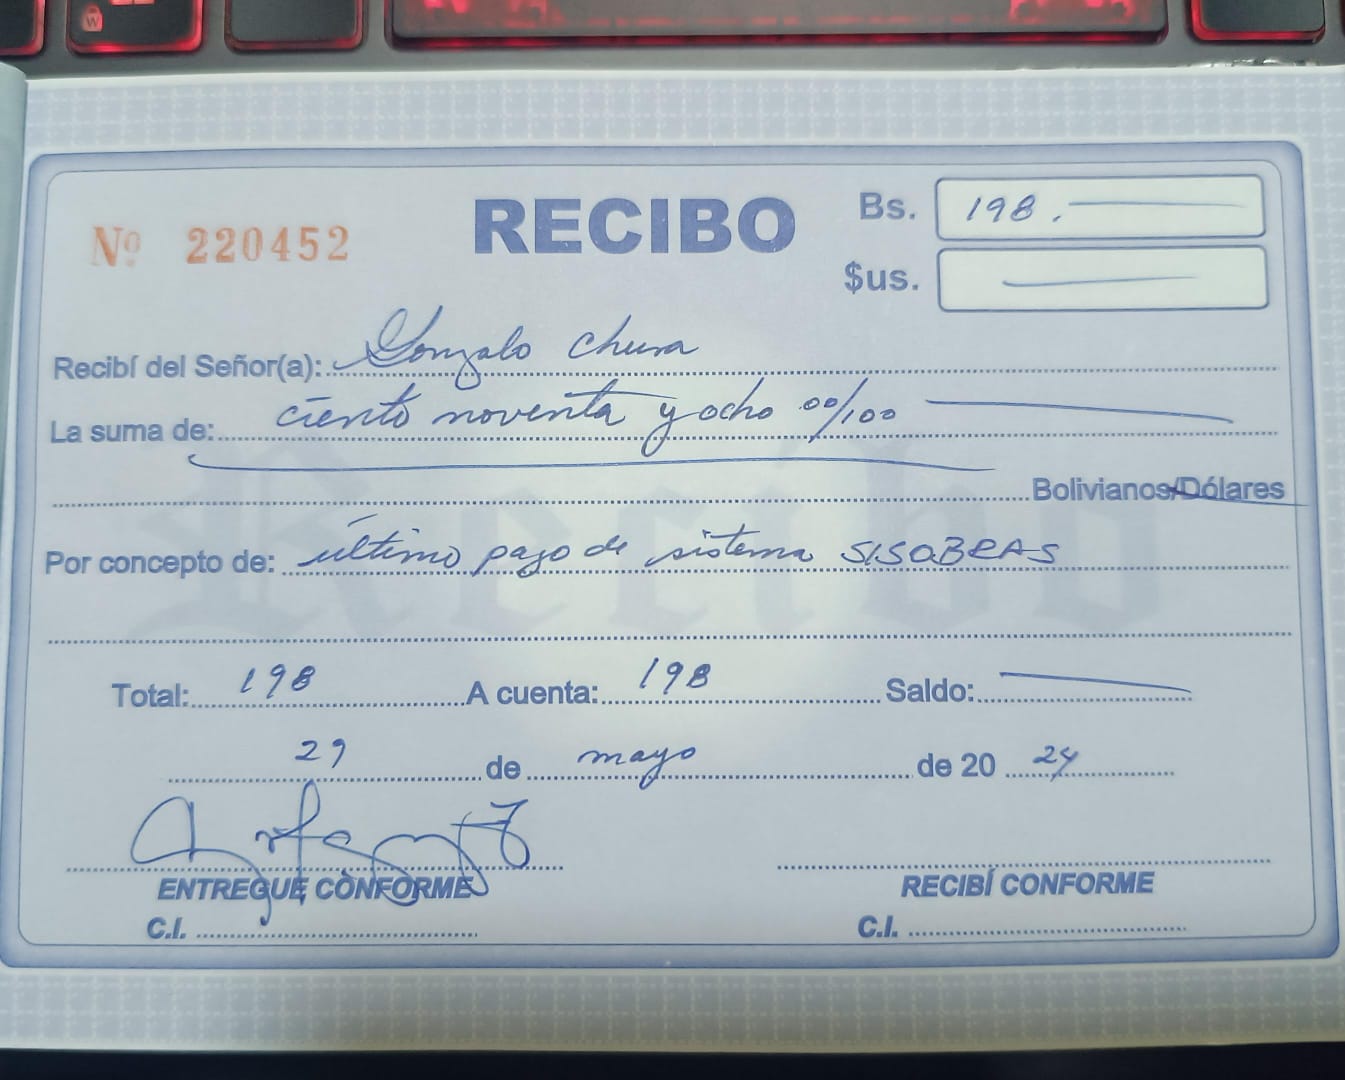 W
Nº 220452
RECIBO
Bs. 198.
$us.
Recibí del Señor(a): Gonzalo Chura
La suma de: ciento noventa y ocho 00/100
Bolivianos/Dólares
Por concepto de: último pago de sistema SISOBRAS
Total: 198 A cuenta: 198 Saldo:
29 de mayo de 2024
ENTREGUE CONFORME RECIBÍ CONFORME
C.I. C.I.
Recibo